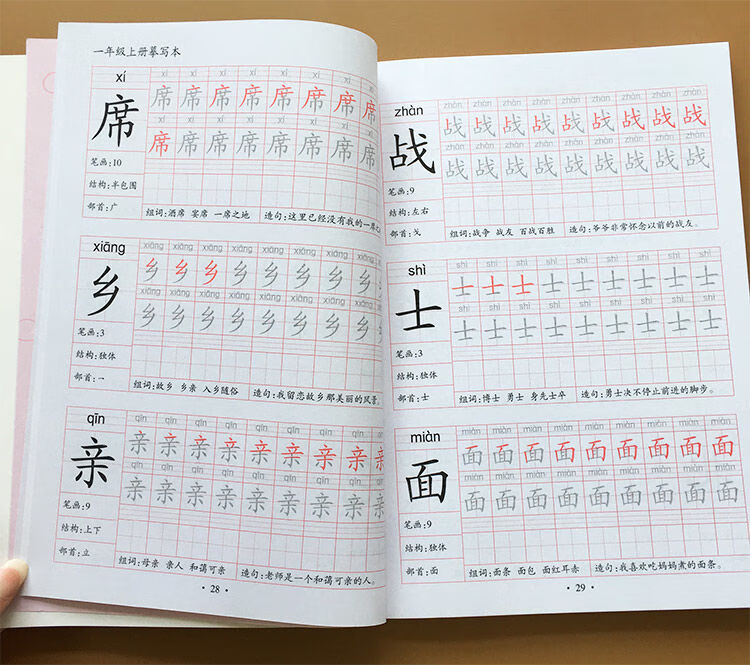 一年级上册摹写本
xí
xí xí xí xí xí xí xí xí
席
席 席 席 席 席 席 席 席
xí xí xí xí xí xí xí xí
席 席 席 席 席 席 席 席
笔画:10
结构:半包围
部首:广
组词:酒席 宴席 一席之地 造句:这里已经没有我的一席之
xiāng
xiāng xiāng xiāng xiāng xiāng xiāng xiāng xiāng
乡
乡 乡 乡 乡 乡 乡 乡 乡
xiāng xiāng xiāng xiāng xiāng xiāng xiāng xiāng
乡 乡 乡 乡 乡 乡 乡 乡
笔画:3
结构:独体
部首:一
组词:故乡 乡亲 入乡随俗 造句:我留恋故乡那美丽的风景。
qīn
qīn qīn qīn qīn qīn qīn qīn qīn
亲
亲 亲 亲 亲 亲 亲 亲 亲 亲
qīn qīn qīn qīn qīn qīn qīn qīn
亲 亲 亲 亲 亲 亲 亲 亲 亲
笔画:9
结构:上下
部首:立
组词:母亲 亲人 和蔼可亲 造句:老师是一个和蔼可亲的人。
· 28 ·
zhàn
zhàn zhàn zhàn zhàn zhàn zhàn zhàn zhàn zhàn
战
战 战 战 战 战 战 战 战 战
zhàn zhàn zhàn zhàn zhàn zhàn zhàn zhàn zhàn
战 战 战 战 战 战 战 战 战
笔画:9
结构:左右
部首:戈
组词:战争 战友 百战百胜 造句:爷爷非常怀念以前的战友。
shì
shì shì shì shì shì shì shì shì shì
士
士 士 士 士 士 士 士 士 士
shì shì shì shì shì shì shì shì shì
士 士 士 士 士 士 士 士 士
笔画:3
结构:独体
部首:士
组词:博士 勇士 身先士卒 造句:勇士决不停止前进的脚步。
miàn
miàn miàn miàn miàn miàn miàn miàn miàn miàn
面
面 面 面 面 面 面 面 面 面
miàn miàn miàn miàn miàn miàn miàn miàn miàn
面 面 面 面 面 面 面 面 面
笔画:9
结构:独体
部首:面
组词:面条 面包 面红耳赤 造句:我喜欢吃妈妈煮的面条。
· 29 ·